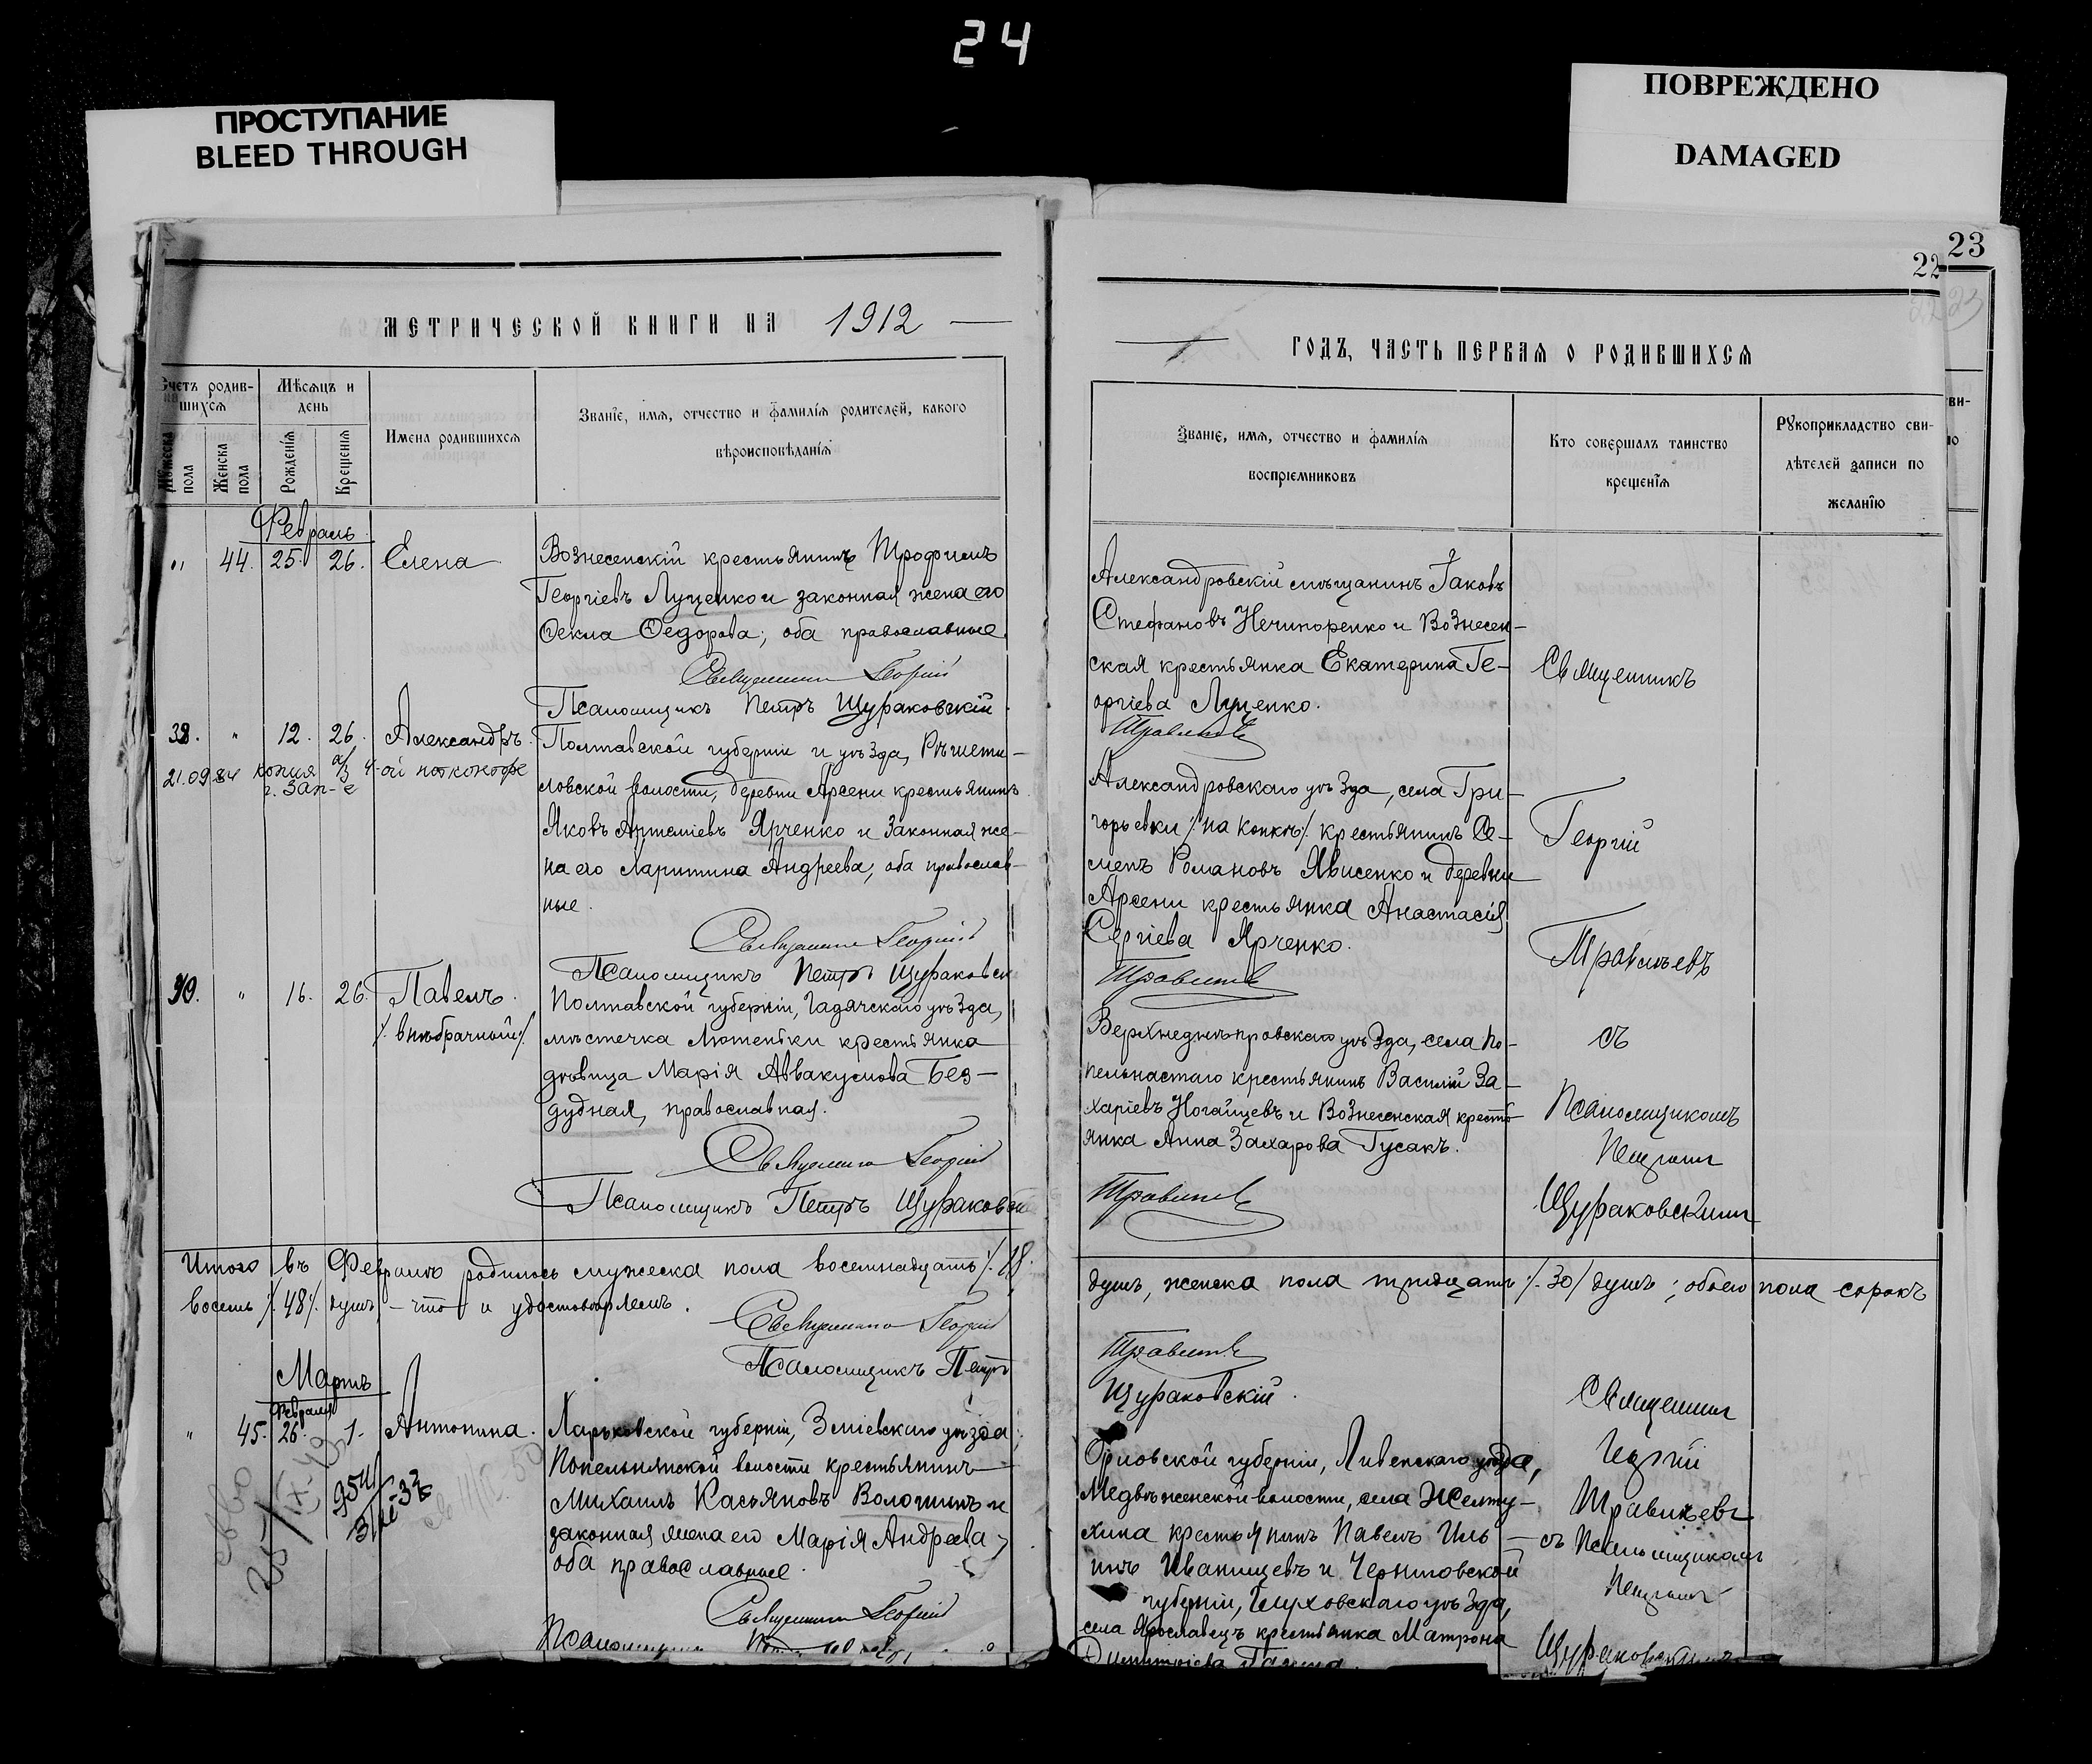 24
ПРОСТУПАНИЕ
BLEED THROUGH
ПОВРЕЖДЕНО
DAMAGED
23
22
МЕТРИЧЕСКОЙ КНИГИ НА 1912
Счетъ родив-
шихся
Мѣсяцъ и
день
Мужеска
пола
Женска
пола
Рожденія
Крещенія
Имена родившихся
Званіе, имя, отчество и фамилія родителей, какого
вѣроисповѣданія
Февраль
" 44. 25. 26. Елена
Вознесенскій крестьянинъ Трофимъ
Георгіевъ Луценко и законная жена его
Ѳекла Ѳедорова; оба православные.
Священникъ Георгій
Псаломщикъ Петръ Щураковскій
38. " 12. 26. Александръ.
21.09.84 копия
Полтавской губерніи и уѣзда, Рѣшети-
ловской волости, деревни Арсени крестьянинъ
Яковъ Артеміевъ Ярченко и законная же-
на его Харитина Андреева; оба православ-
ные.
Священникъ Георгій
Псаломщикъ Петръ Щураковскій
" 16. 26. Павелъ.
/. внѣбрачный /.
Полтавской губерніи, Гадячскаго уѣзда,
мѣстечка Лютеньки крестьянка
дѣвица Марія Аввакумова Без-
дудная, православная.
Священникъ Георгій
Псаломщикъ Петръ Щураковскій
Итого въ Февралѣ родилось мужеска пола восемнадцать /. 18.
восемь /. 48 /. душъ, - что и удостовѣряемъ.
Священникъ Георгій
Псаломщикъ Петръ
Мартъ
Февраля
" 45. 26. 1. Антонина.
Харьковской губерніи, Зміевскаго уѣзда,
волости крестьянинъ
Михаилъ Касьяновъ Волошинъ и
законная жена его Марія Андреева;
оба православные.
Священникъ Георгій
Псаломщикъ
ГОДЪ, ЧАСТЬ ПЕРВАЯ О РОДИВШИХСЯ
Званіе, имя, отчество и фамилія
воспріемниковъ
Кто совершалъ таинство
крещенія
Рукоприкладство сви-
дѣтелей записи по
желанію
Александровскій мѣщанинъ Іаковъ
Стефановъ Нечипоренко и Вознесен-
ская крестьянка Екатерина Ге-
оргіева Луценко.
Травинъ
Александровскаго уѣзда, села Гри-
горьевки /. на Конкѣ /. крестьянинъ Се-
менъ Романовъ Явисенко и деревни
Арсени крестьянка Анастасія
Сергіева Ярченко.
Верхнеднѣпровскаго уѣзда, села По-
пельнастаго крестьянинъ Василій За-
харіевъ Ногайцевъ и Вознесенская кресть-
янка Анна Захарова Гусакъ.
Священникъ
Георгій
съ
Псаломщикомъ
Петромъ
Щураковскимъ
душъ, женска пола тридцать /. 30 / душъ; обоего пола сорокъ
Щураковскій.
Орловской губерніи, Ливенскаго уѣзда,
Медвѣженской волости, села Желту-
хина крестьянинъ Павелъ Иль-
инъ Иванищевъ и Черниговской
губерніи, Глуховскаго уѣзда,
села Ярославецъ крестьянка Матрона
Священникъ
Георгій
съ Псаломщикомъ
Петромъ
Щураковскимъ